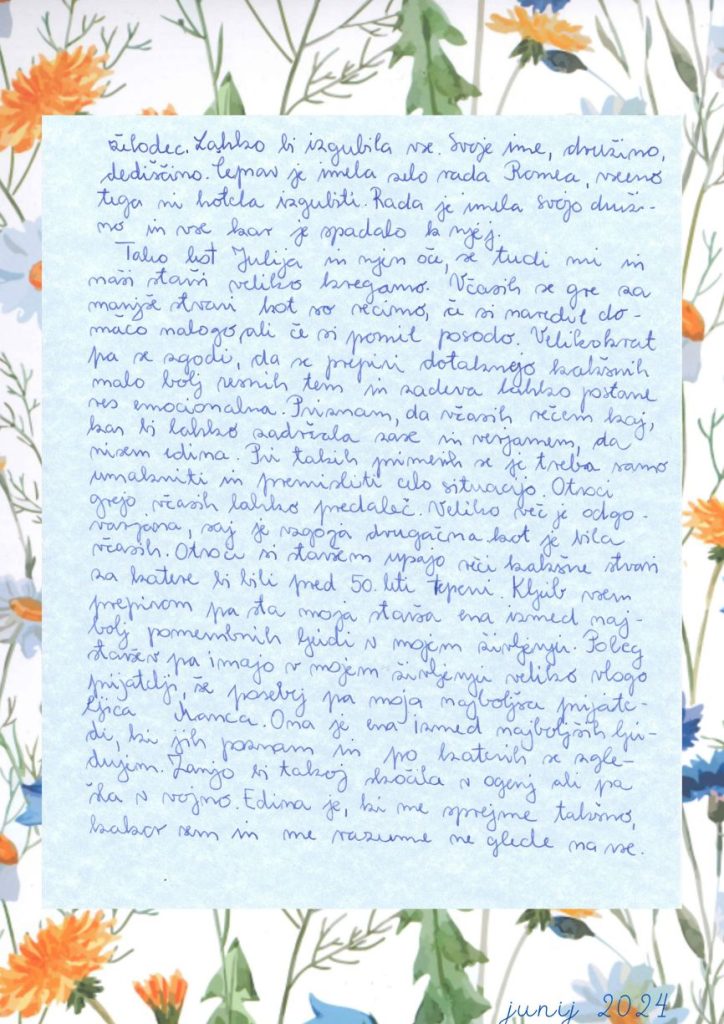 želodec. Lahko bi izgubila vse. Svoje ime, družino,
dediščino. Čeprav je imela zelo rada Romea, vseeno
tega ni hotela izgubiti. Rada je imela svojo druži-
no in vse kar je spadalo k njej.
Tako kot Julija in njen oče, se tudi mi in
naši starši veliko kregamo. Včasih se gre za
manjše stvari kot so recimo, če si naredil do-
mačo nalogo, ali če si pomil posodo. Velikokrat
pa se zgodi, da se prepiri dotaknejo kakšnih
malo bolj resnih tem in zadeva lahko postane
res emocionalna. Priznam, da včasih rečem kaj,
kar bi lahko zadržala zase in verjamem, da
nisem edina. Pri takih primerih se je treba samo
umakniti in premisliti celo situacijo. Otroci
grejo včasih lahko predaleč. Veliko več je odgo-
varjanja, saj je vzgoja drugačna kot je bila
včasih. Otroci si staršem upajo reči kakšne stvari
za katere bi bili pred 50. leti tepeni. Kljub vsem
prepirom pa sta moja starša ena izmed naj-
bolj pomembnih ljudi v mojem življenju. Poleg
staršev pa imajo v mojem življenju veliko vlogo
prijatelji, še posebej pa moja najboljša prijate-
ljica Manca. Ona je ena izmed najboljših lju-
di, ki jih poznam in po katerih se zgle-
dujem. Zanjo bi takoj skočila v ogenj ali pa
šla v vojno. Edina je, ki me sprejme takšno,
kakor sem in me razume ne glede na vse.
junij 2024